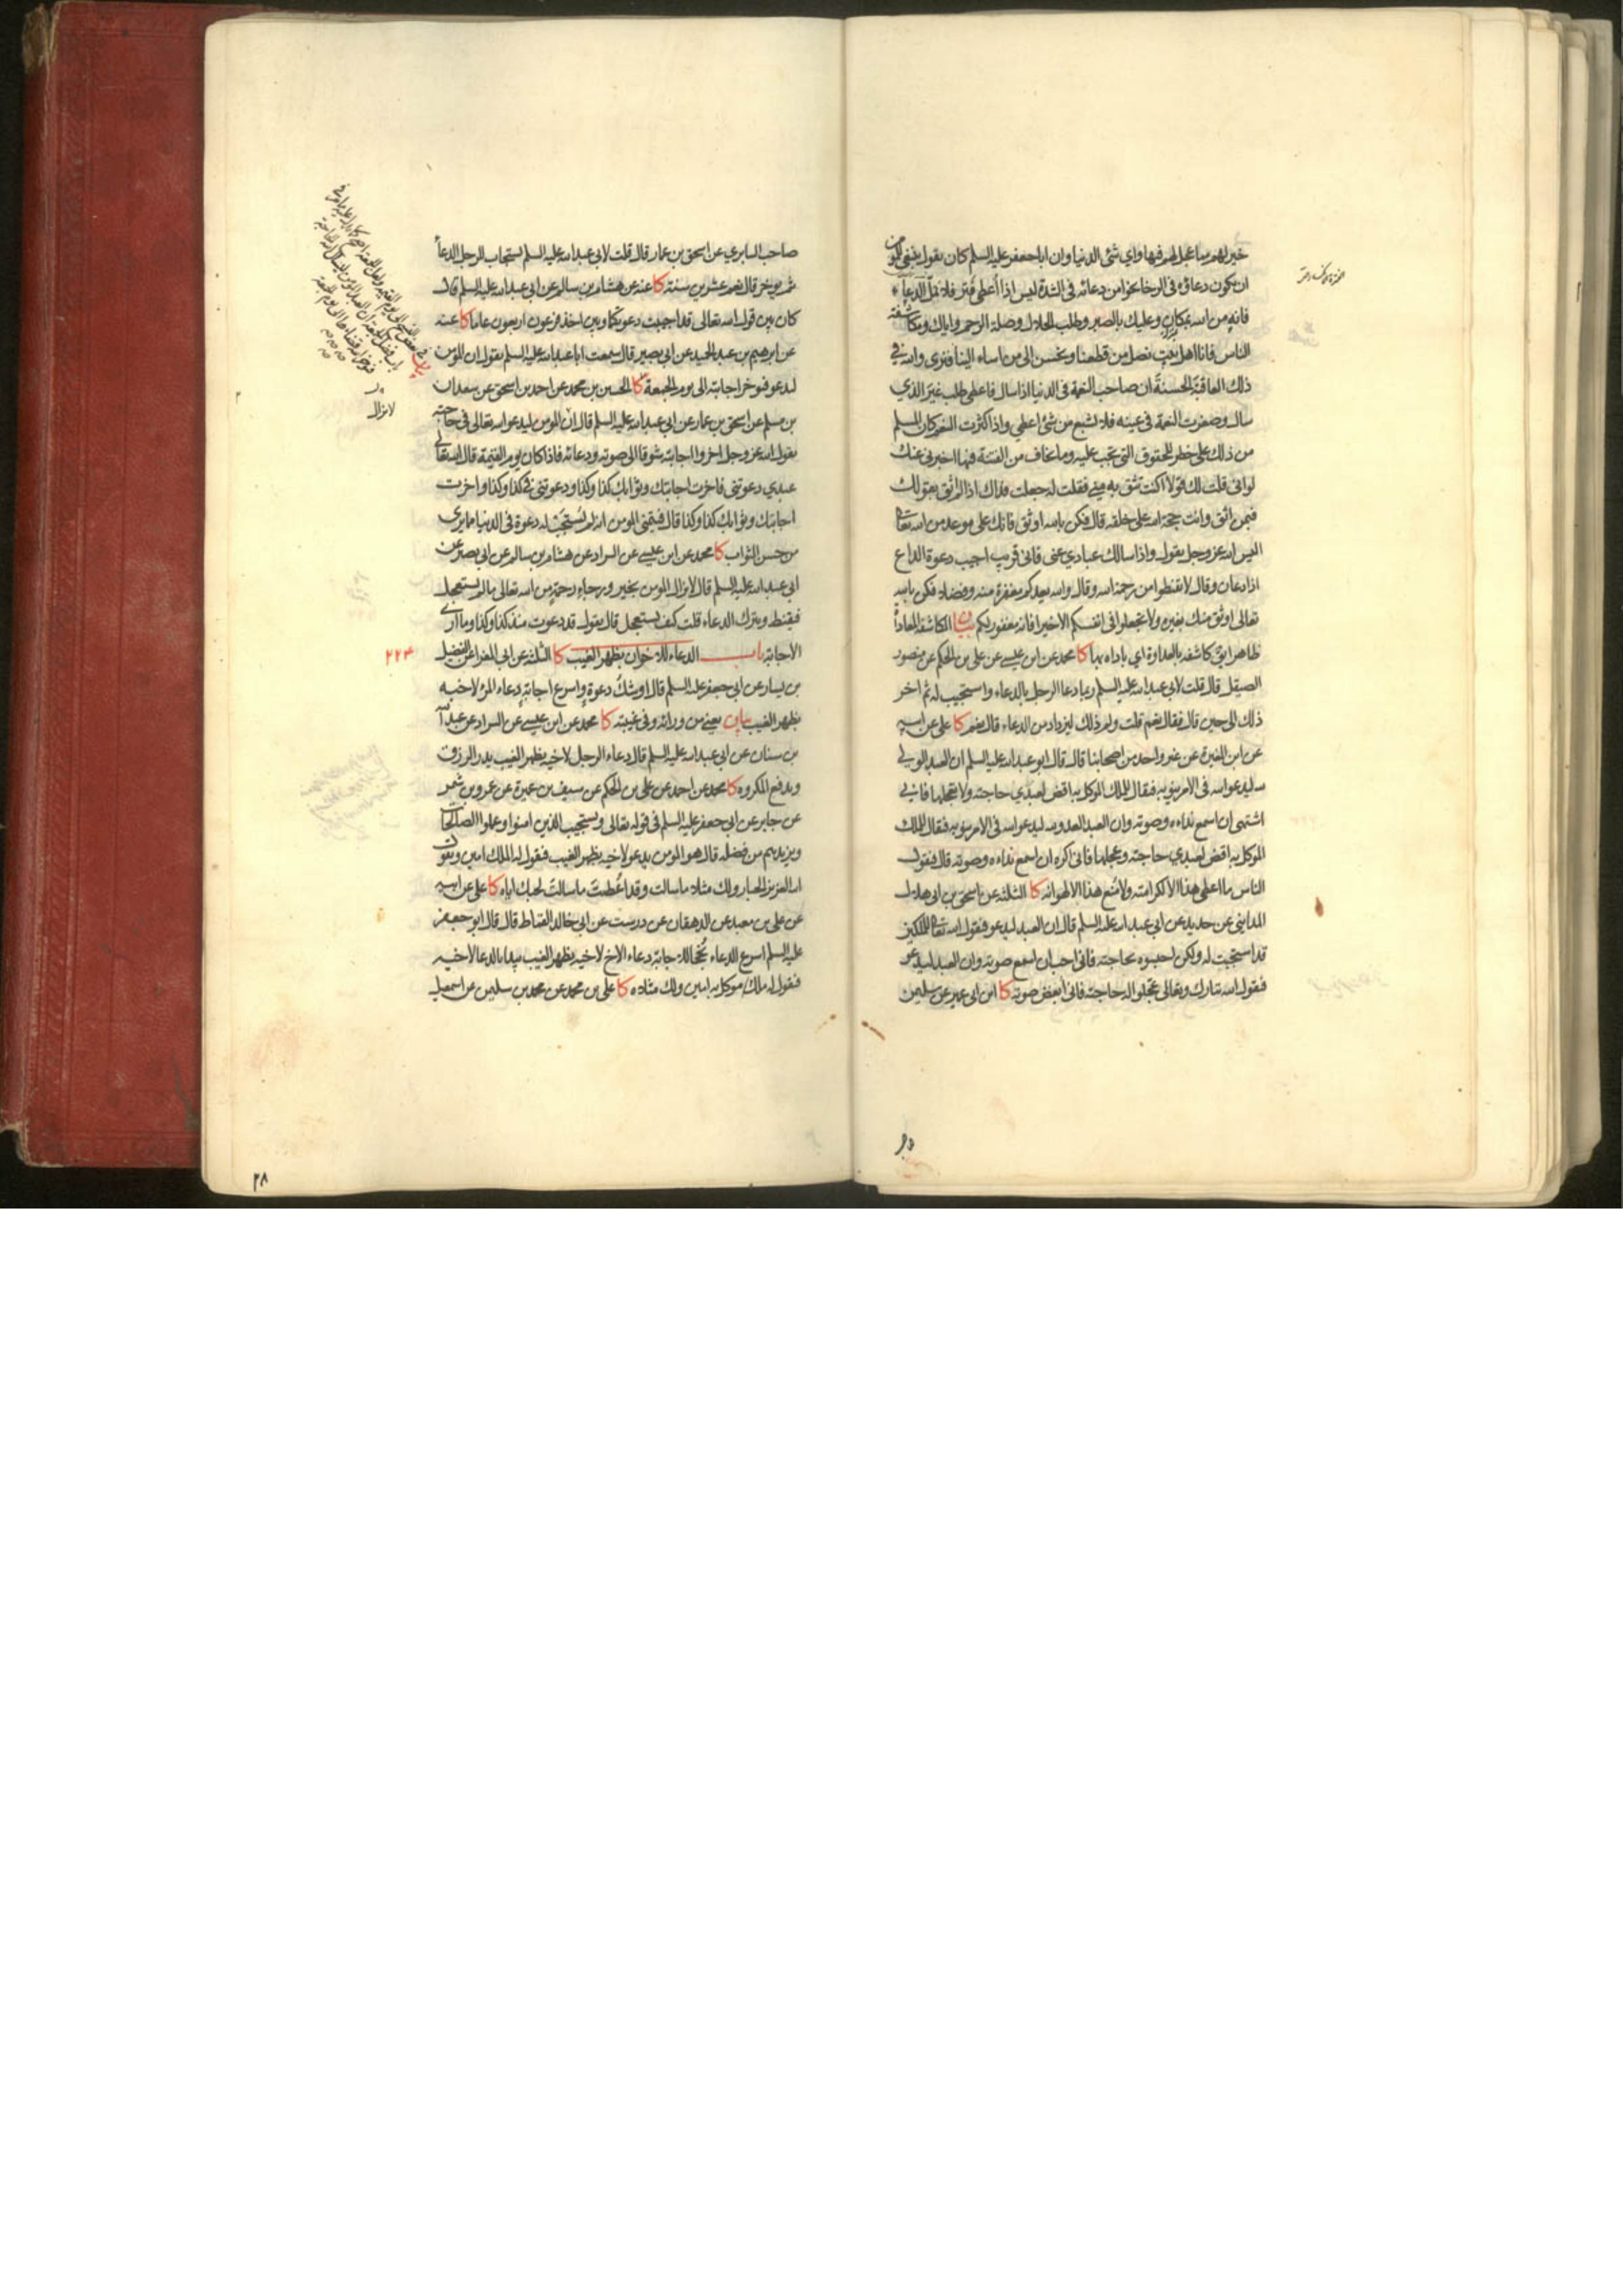 خير لهم مما عجل لهم فيها واي شئ الدنيا وان ابا جعفر عليه السلم كان يقول ينبغي للمؤمن
ان يكون دعاؤه في الرخا نحوا من دعائه في الشدة ليس اذا أعطي فتر فلا تمل الدعا
فانه من الله بمكان وعليك بالصبر وطلب الحلال وصلة الرحم واياك ومكاشفة
الناس فانا اهل بيت نصل من قطعنا ونحسن الى من اساء الينا فنرى والله في
ذلك العاقبة الحسنة ان صاحب النعمة في الدنيا اذا سال فاعطي طلب غير الذي
سال وصغرت النعمة في عينه فلا تشبع من شئ اعطي واذا كثرت النعم كان المسلم
من ذلك على خطر للحقوق التي تجب عليه وما يخاف من الفتنة فيها اخبرني عنك
لو اني قلت لك قولا اكنت تثق به مني فقلت له جعلت فداك اذا لم اثق بقولك
فبمن اثق وانت حجة الله على خلقه قال فكن بالله اوثق فانك على موعد من الله تعالى
اليس الله عز وجل يقول واذا سالك عبادي عني فاني قريب اجيب دعوة الداع
اذا دعان وقال لا تقنطوا من رحمة الله وقال والله يعدكم مغفرة منه وفضلا فكن بالله
تعالى اوثق منك بغيره ولا تجعلوا في انفسكم الا خيرا فانه مغفور لكم بيان المكاشفة المعاداة
ظاهرا يق كاشفه بالعداوة اي باداه بها كا محمد عن ابن عيسى عن علي بن الحكم عن منصور
الصيقل قال قلت لابي عبد الله عليه السلم ربما دعا الرجل بالدعاء واستجيب له ثم اخر
ذلك الى حين قال فقال نعم قلت ولم ذلك ليزداد من الدعاء قال نعم كا علي عن ابيه
عن ابن المغيرة عن غير واحد من اصحابنا قال قال ابو عبد الله عليه السلم ان العبد الولي
لله ليدعو الله في الامر ينوبه فقال للملك الموكل به اقض لعبدي حاجته ولا تعجلها فاني
اشتهي ان اسمع نداءه وصوته وان العبد العدو لله ليدعو الله في الامر ينوبه فقال للملك
الموكل به اقض لعبدي حاجته وعجلها فاني اكره ان اسمع نداءه وصوته قال فيقول
الناس ما اعطي هذا الا لكرامته ولا منع هذا الا لهوانه كا الثلثة عن اسحق بن ابي هلال
المدايني عن حديد عن ابي عبد الله عليه السلم قال ان العبد ليدعو فيقول الله تعالى للملكين
قد استجبت له ولكن احبسوه بحاجته فاني احب ان اسمع صوته وان العبد ليدعو
فيقول الله تبارك وتعالى عجلوا له حاجته فاني ابغض صوته كا ابن ابي عمير عن سليمن
صاحب السابري عن اسحق بن عمار قال قلت لابي عبد الله عليه السلم يستجاب للرجل الدعا
ثم يؤخر قال نعم عشرين سنة كا عنه عن هشام بن سالم عن ابي عبد الله عليه السلم قال
كان بين قول الله تعالى قد اجيبت دعوتكما وبين اخذ فرعون اربعون عاما كا عنه
عن ابرهيم بن عبد الحميد عن ابي بصير قال سمعت ابا عبد الله عليه السلم يقول ان المؤمن
ليدعو فيؤخر اجابته الى يوم الجمعة كا الحسين بن محمد عن احمد بن اسحق عن سعدان
بن مسلم عن اسحق بن عمار عن ابي عبد الله عليه السلم قال ان المؤمن ليدعو الله تعالى في حاجته
يقول الله عز وجل اخروا اجابته شوقا الى صوته ودعائه فاذا كان يوم القيمة قال الله تعالى
عبدي دعوتني فاخرت اجابتك وثوابك كذا وكذا ودعوتني في كذا وكذا واخرت
اجابتك وثوابك كذا وكذا قال فيتمنى المؤمن انه لم يستجب له دعوة في الدنيا مما يرى
من حسن الثواب كا محمد عن ابن عيسى عن السراد عن هشام بن سالم عن ابي بصير عن
ابي عبد الله عليه السلم قال لا يزال المؤمن بخير ورجاء رحمة من الله تعالى ما لم يستعجل
فيقنط ويترك الدعاء قلت كيف يستعجل قال يقول قد دعوت منذ كذا وكذا وما ارى
الاجابة باب الدعاء للاخوان بظهر الغيب كا الثلثة عن ابي المغرا عن الفضيل
٢٢٤
بن يسار عن ابي جعفر عليه السلم قال اوشك دعوة واسرع اجابة دعاء المرء لاخيه
بظهر الغيب بيان يعني من ورائه وفي غيبته كا محمد عن ابن عيسى عن السراد عن عبد الله
بن سنان عن ابي عبد الله عليه السلم قال دعاء الرجل لاخيه بظهر الغيب يدر الرزق
ويدفع المكروه كا محمد عن احمد عن علي بن الحكم عن سيف بن عميرة عن عمرو بن شمر
عن جابر عن ابي جعفر عليه السلم في قوله تعالى ويستجيب الذين امنوا وعملوا الصالحات
ويزيدهم من فضله قال هو المؤمن يدعو لاخيه بظهر الغيب فيقول له الملك امين ويقول
الله العزيز الجبار ولك مثلا ما سالت وقد أعطيت ما سالت لحبك اياه كا علي عن ابيه
عن علي بن معبد عن الدهقان عن درست عن ابي خالد القماط قال قال ابو جعفر
عليه السلم اسرع الدعاء نجحا للاجابة دعاء الاخ لاخيه بظهر الغيب يبدا بالدعا لاخيه
فيقول له ملك موكل به امين ولك مثلاه كا علي بن محمد عن محمد بن سليمن عن اسمعيل
لا يزال
٢٨